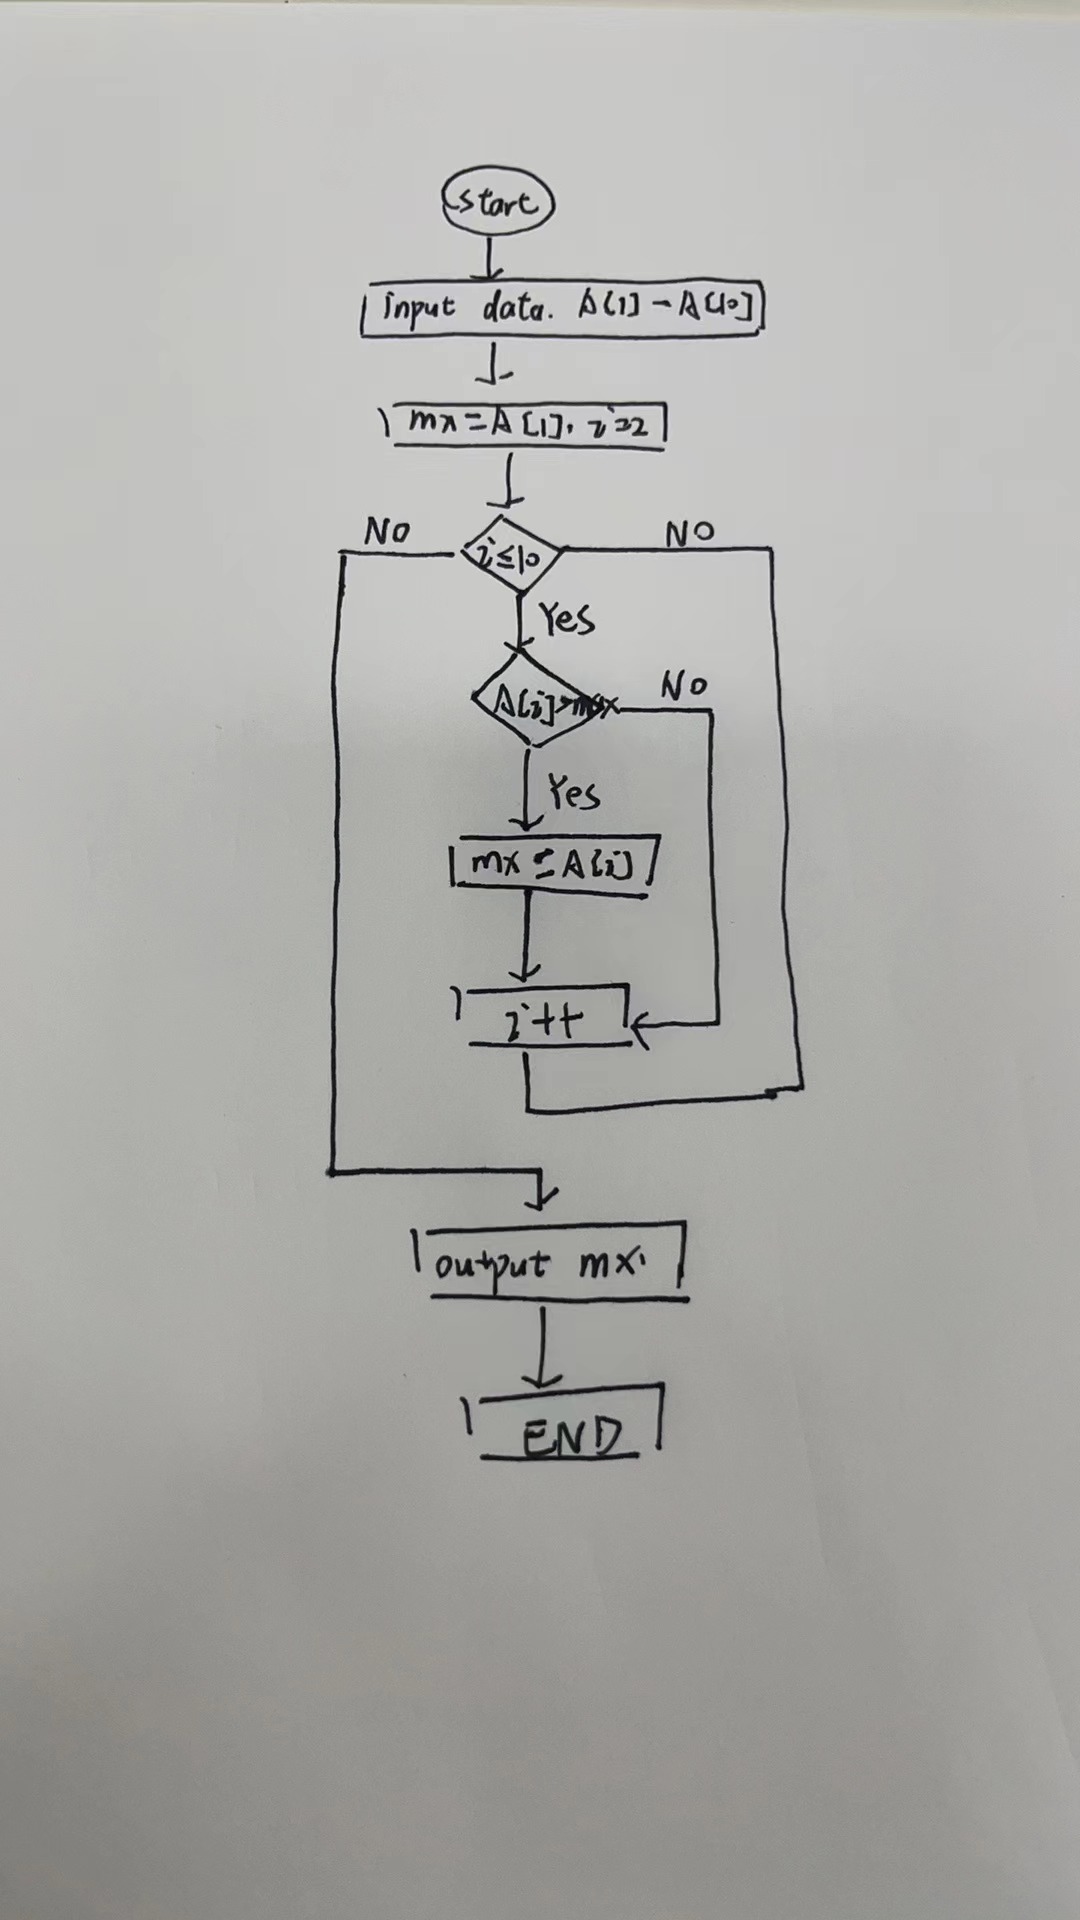 start
input data. A[1] - A[10]
mx = A[1]. i=2
NO
i≤10
NO
Yes
A[i]>mx
NO
Yes
mx = A[i]
i++
output mx.
END